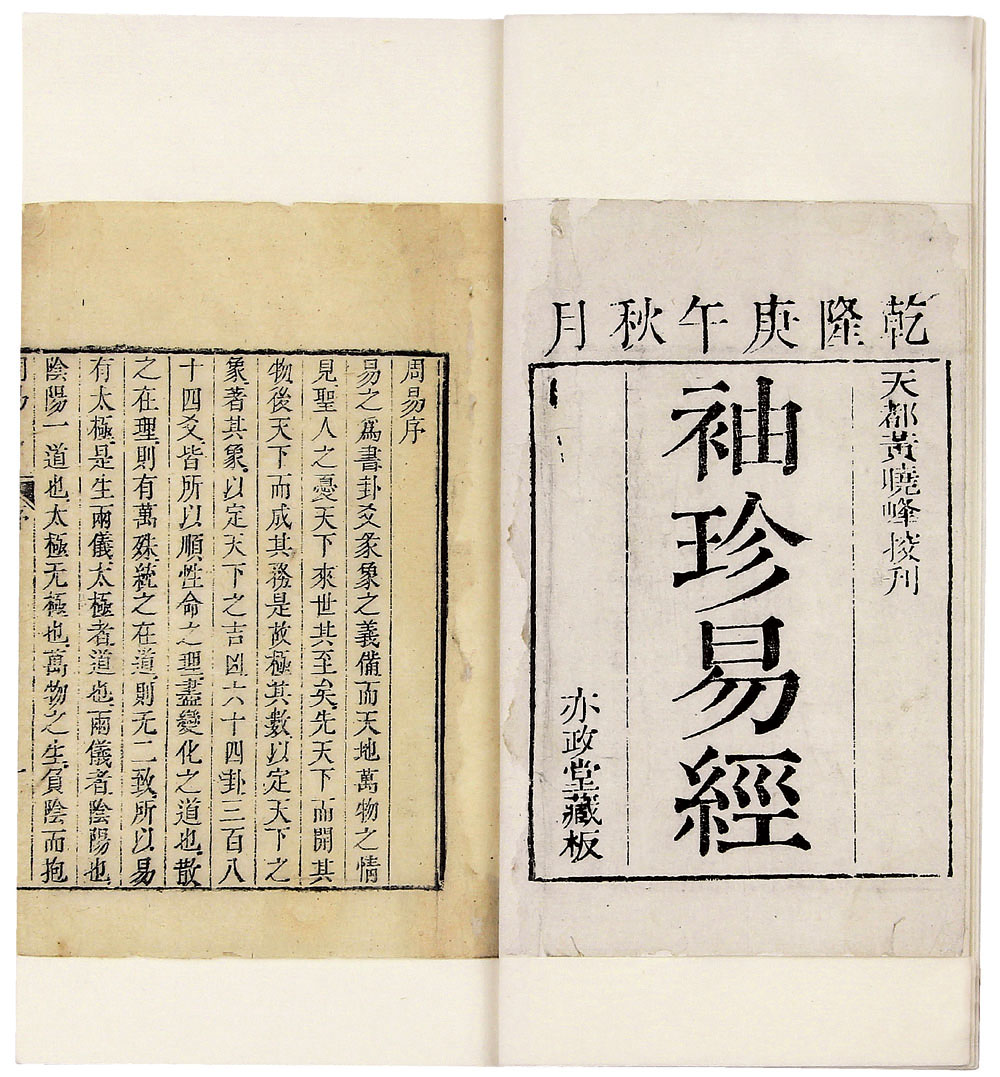 乾隆庚午秋月
天都黃曉峰挍刋
袖珍易經
亦政堂藏板
周易序
易之爲書卦爻彖象之義備而天地萬物之情
見聖人之憂天下來世其至矣先天下而開其
物後天下而成其務是故極其數以定天下之
象著其象以定天下之吉凶六十四卦三百八
十四爻皆所以順性命之理盡變化之道也散
之在理則有萬殊統之在道則无二致所以易
有太極是生兩儀太極者道也兩儀者陰陽也
陰陽一道也太極无極也萬物之生負陰而抱